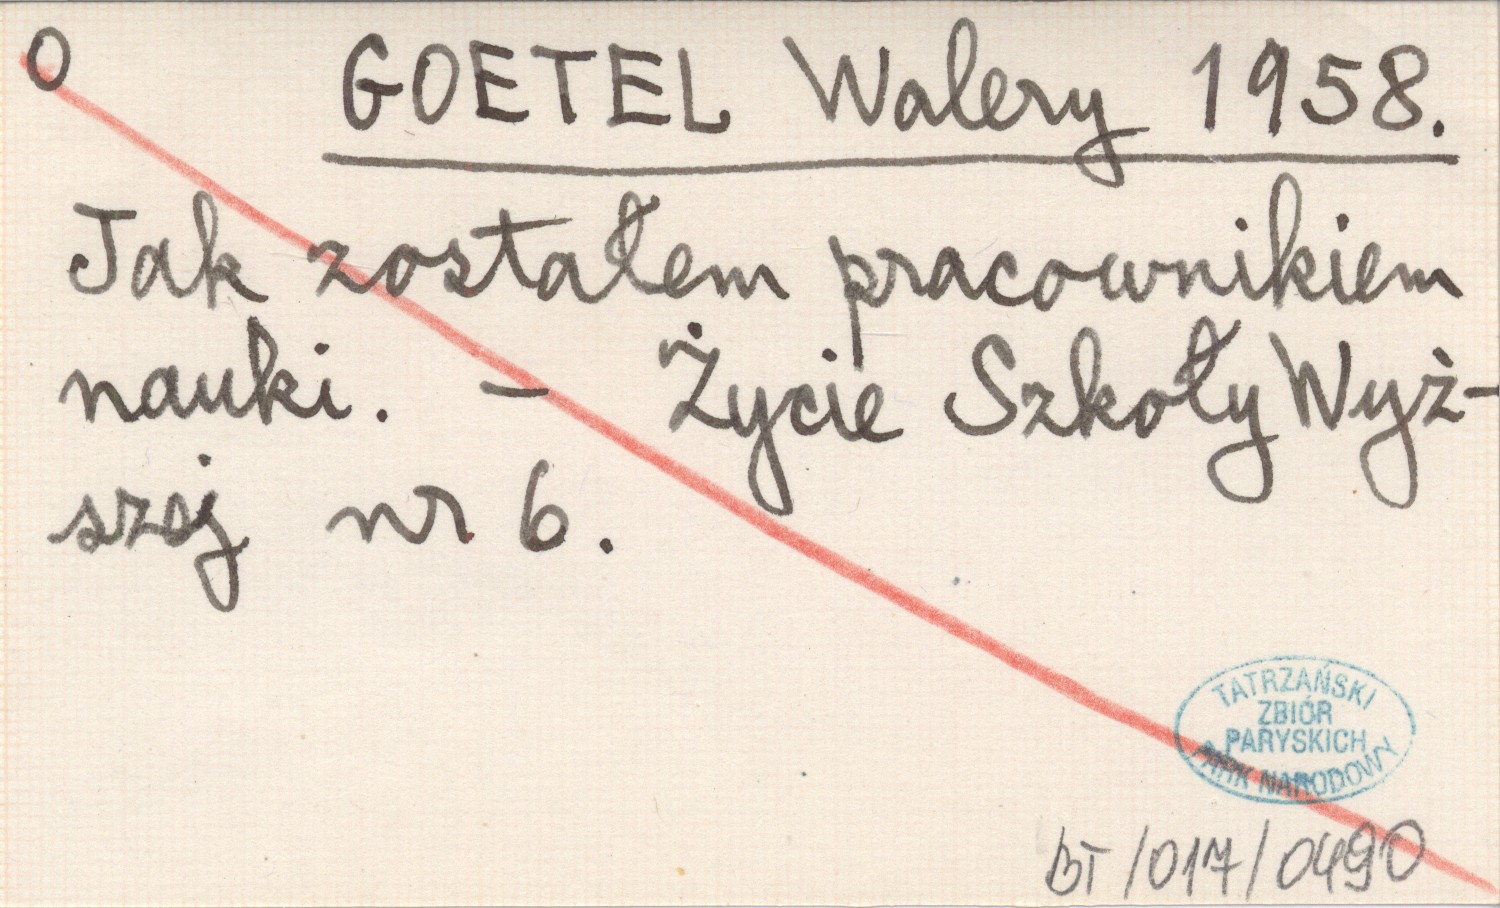 O GOETEL Walery 1958.
Jak zostałem pracownikiem
nauki. – Życie Szkoły Wyż-
szej nr 6.
TATRZAŃSKI
ZBIÓR
PARYSKICH
PARK NARODOWY
BT/017/0490